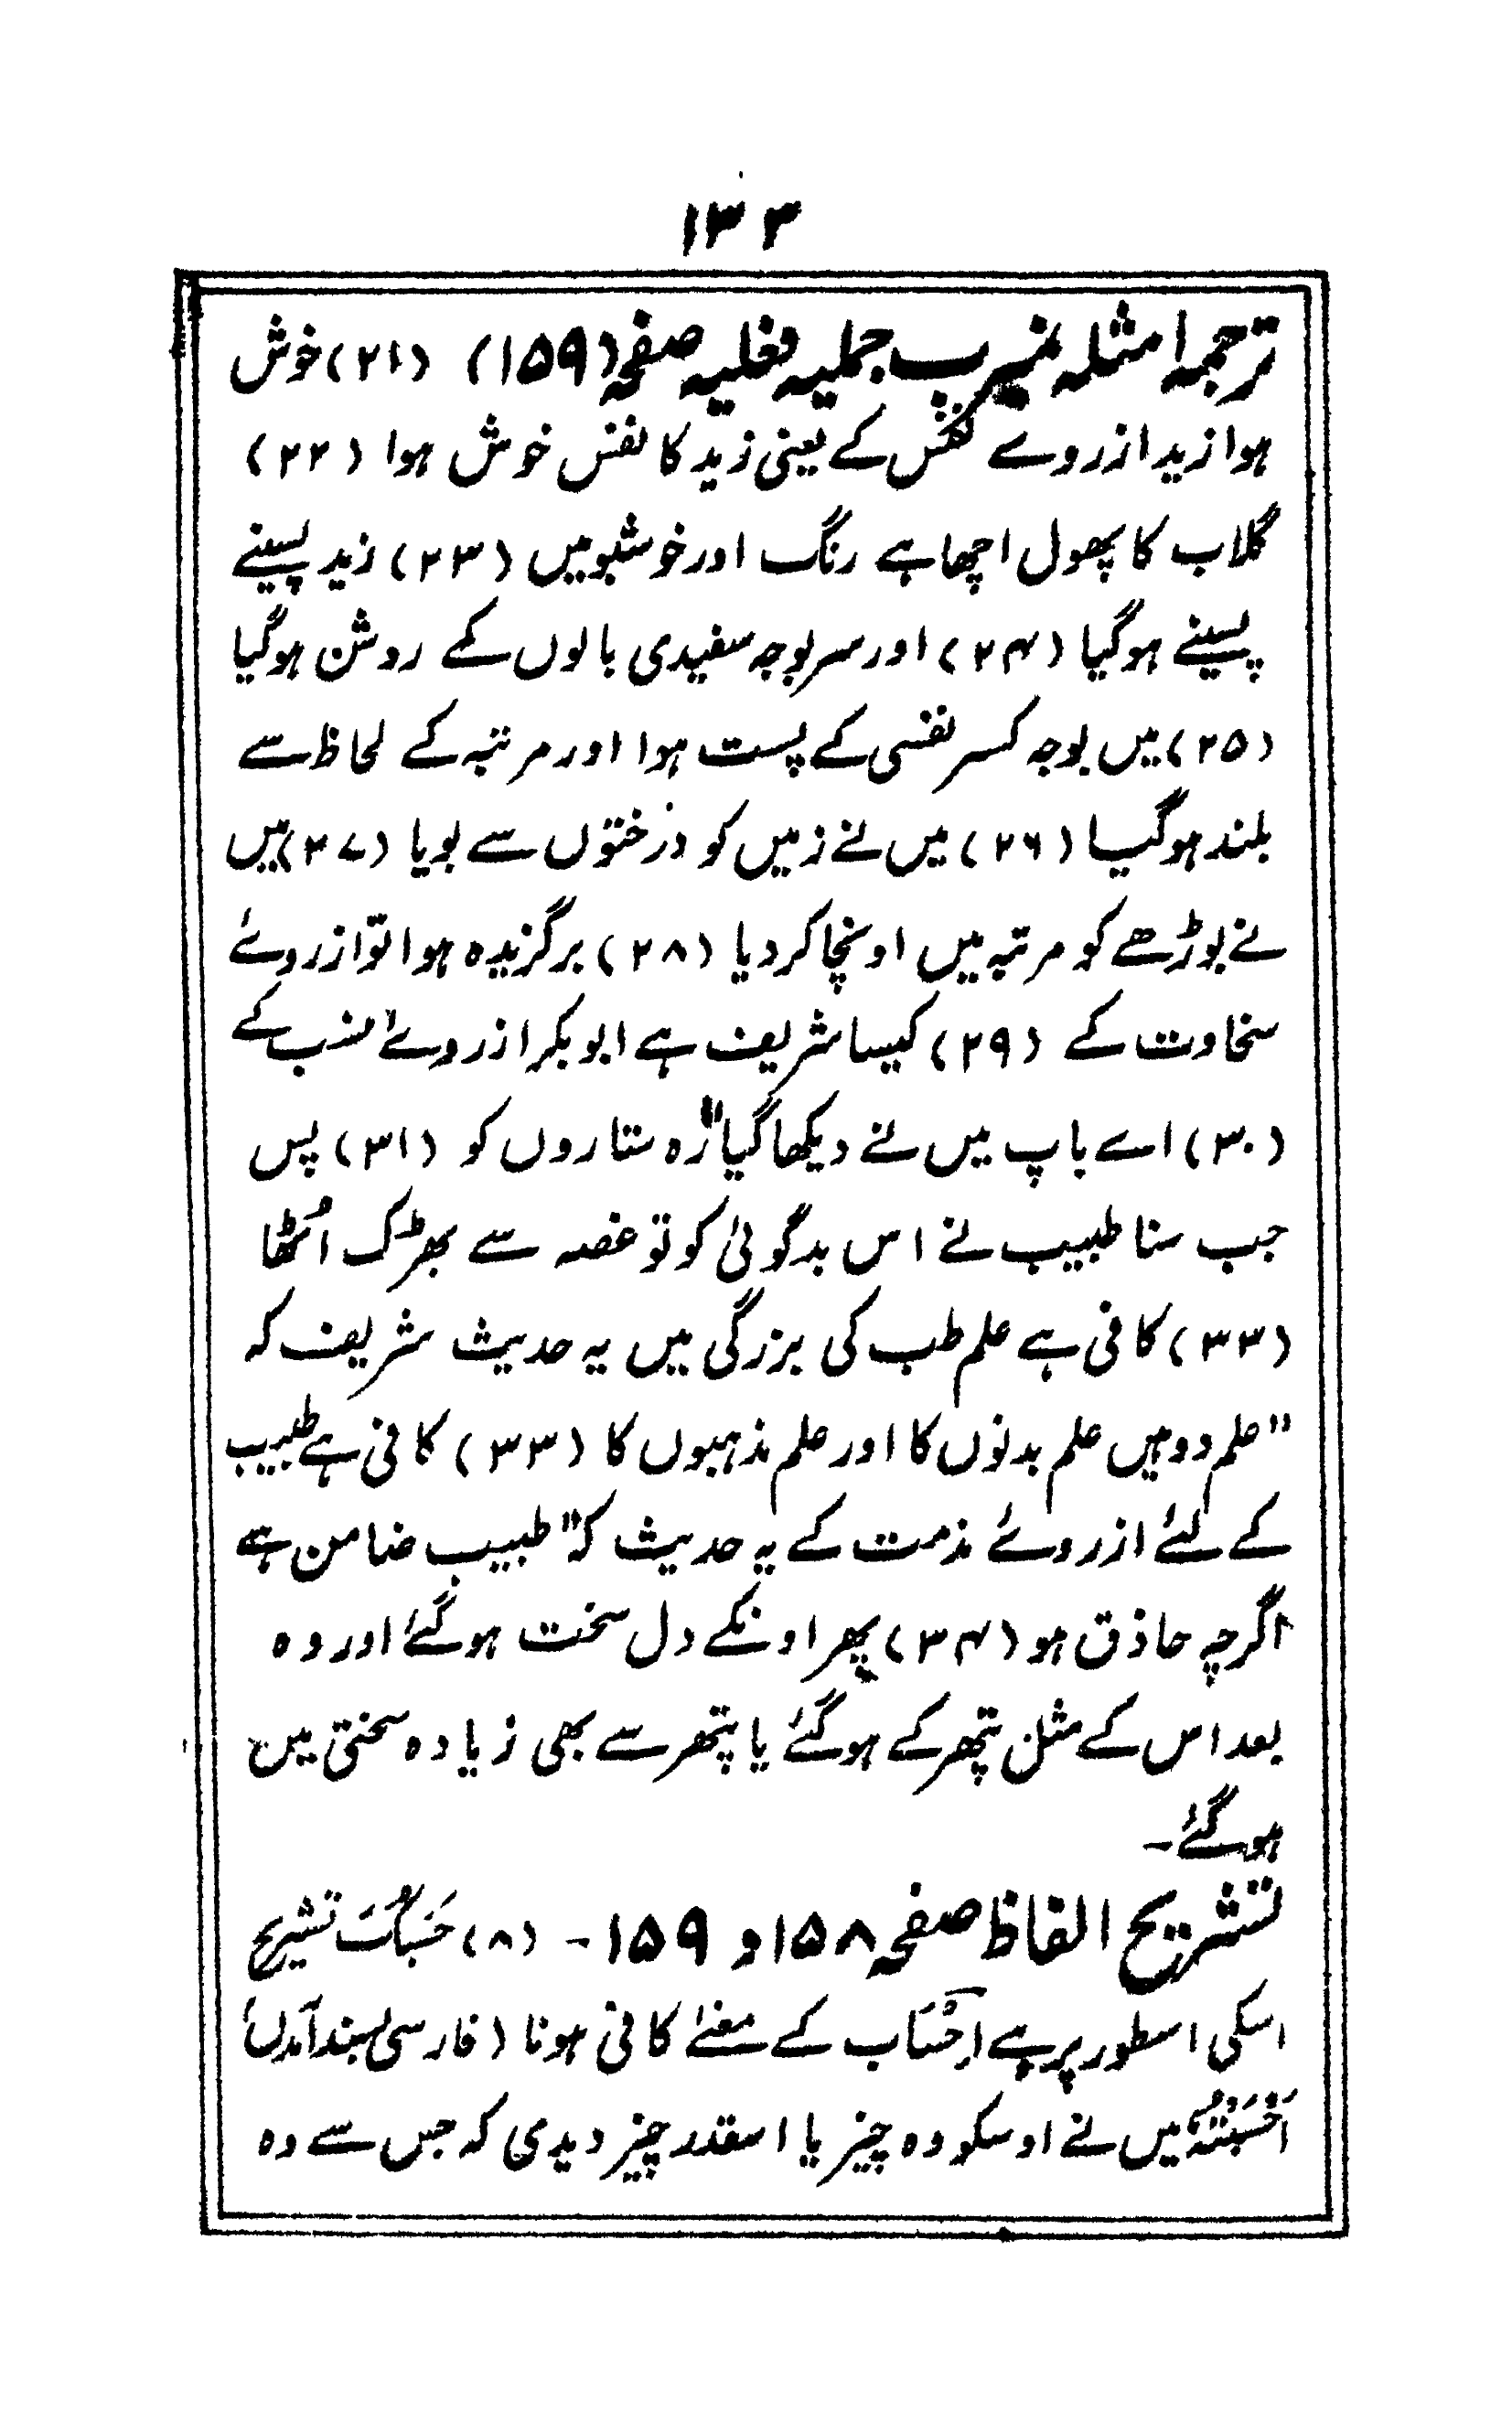 ۱۳۳
ترجمہ امثلہ ب جملیہ فعلیہ صفحہ (۱۵۹) (۲۱) خوش
ہوا زید ازروے نفس کے یعنی زید کا نفس خوش ہوا (۲۲)
گلاب کا پھول اچھا ہے رنگ اور خوشبو میں (۲۳) زید پسینے
پسینے ہوگیا (۲۴) اور سر بوجہ سفیدی بالوں کے روشن ہوگیا
(۲۵) میں بوجہ کسر نفسی کے پست ہوا اور مرتبہ کے لحاظ سے
بلند ہوگیا (۲۶) میں نے زمیں کو درختوں سے بویا (۲۷) میں
نے بوڑھے کو مرتبہ میں اونچا کردیا (۲۸) برگزیدہ ہوا تو ازروئے
سخاوت کے (۲۹) کیسا شریف ہے ابوبکر ازروئے نسب کے
(۳۰) اے باپ میں نے دیکھا گیارہ ستاروں کو (۳۱) پس
جب سنا طبیب نے اس بدگوئی کو تو غصہ سے بھڑک اُٹھا
(۳۳) کافی ہے علم طب کی بزرگی میں یہ حدیث شریف کہ
"علم دو ہیں علم بدنوں کا اور علم مذہبوں کا (۳۳) کافی ہے طبیب
کے لئے ازروئے مذمت کے یہ حدیث کہ "طبیب ضامن ہے
اگرچہ حاذق ہو (۳۴) پھر اونکے دل سخت ہوگئے اور وہ
بعد اس کے مثل پتھر کے ہوگئے یا پتھر سے بھی زیادہ سختی میں
ہوگئے۔
تشریح الفاظ صفحہ ۱۵۸ و ۱۵۹۔ (۸) حَسْبُکَ تشریح
اسکی اسطور پر ہے اِحْسَاب کے معنےٰ کافی ہونا (فارسی بسند آمدن)
اَحْسَبْتُہٗ میں نے اوسکو وہ چیز یا اسقدر چیز دیدی کہ جس سے وہ